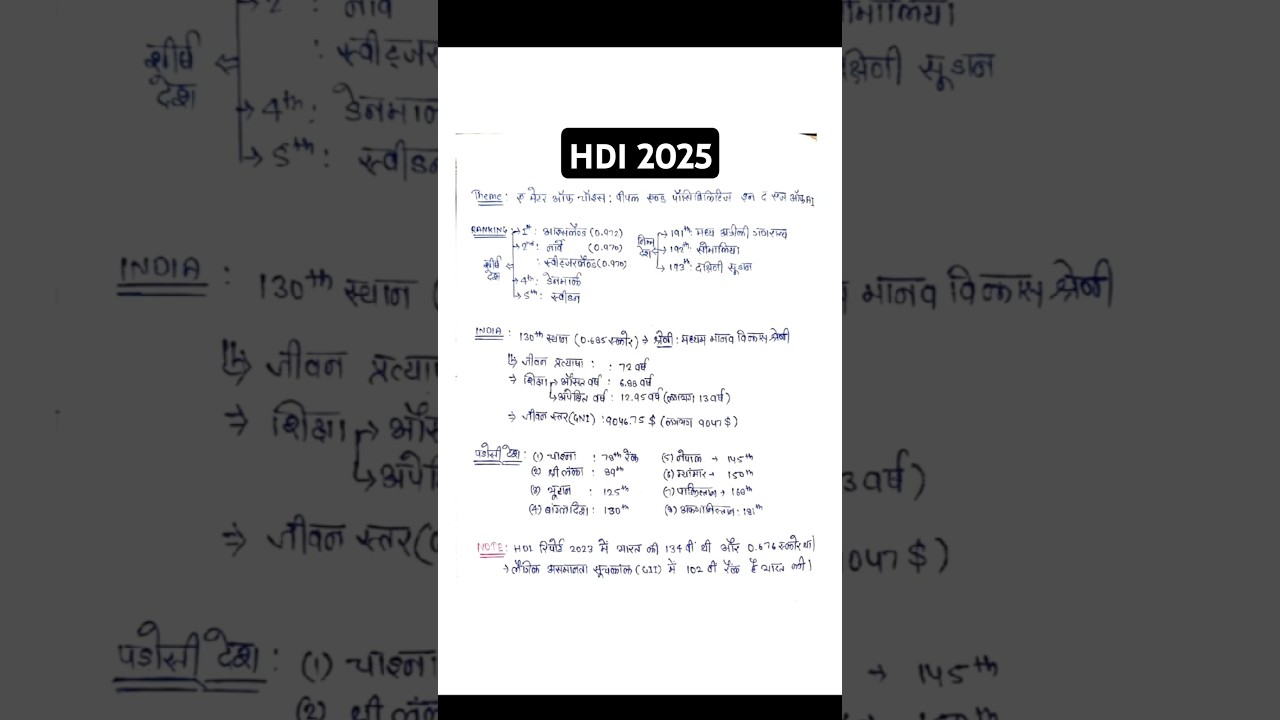 HDI 2025
Theme: ए मेटर ऑफ चॉइस: पीपल एण्ड पॉसिबिलिटिज इन द एज ऑफ AI
RANKING → 1st: आइसलैंड (0.972)
→ 2nd: नार्वे (0.970)
: स्वीट्जरलैंड (0.970)
शीर्ष देश
→ 4th: डेनमार्क
→ 5th: स्वीडन
निम्न देश
→ 191th: मध्य अफ्रीकी गणराज्य
→ 192th: सोमालिया
→ 193th: दक्षिणी सूडान
INDIA: 130th स्थान (0.685 स्कोर) → श्रेणी: मध्यम मानव विकास श्रेणी
↳ जीवन प्रत्याशा : : 72 वर्ष
→ शिक्षा → औसत वर्ष : 6.88 वर्ष
↳ अपेक्षित वर्ष : 12.95 वर्ष (लगभग 13 वर्ष)
→ जीवन स्तर (GNI) : 9046.75 $ (लगभग 9047 $)
पडोसी देश: (1) चाइना : 78th रैंक (5) नेपाल → 145th
(2) श्री लंका : 89th (6) म्यांमार → 150th
(3) भूटान : 125th (7) पाकिस्तान → 168th
(4) बांग्लादेश : 130th (8) अफगानिस्तान : 181th
NOTE: HDI रिपोर्ट 2023 में भारत की 134 वी थी और 0.676 स्कोर था|
→ लैंगिक असमानता सूचकांक (GII) में 102 वी रैंक है भारत की|